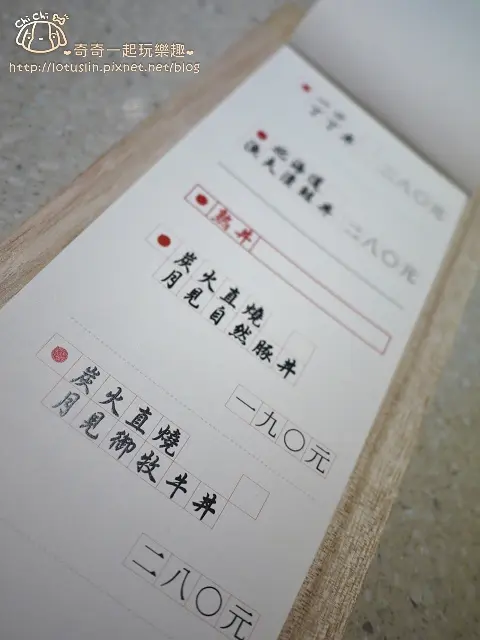 ChiChi
奇奇一起玩樂趣
http://lotuslin.pixnet.net/blog
北海道
二八〇元
熟丼
炭火直燒
月見自然豚丼
一九〇元
炭火直燒
月見御牧牛丼
二八〇元